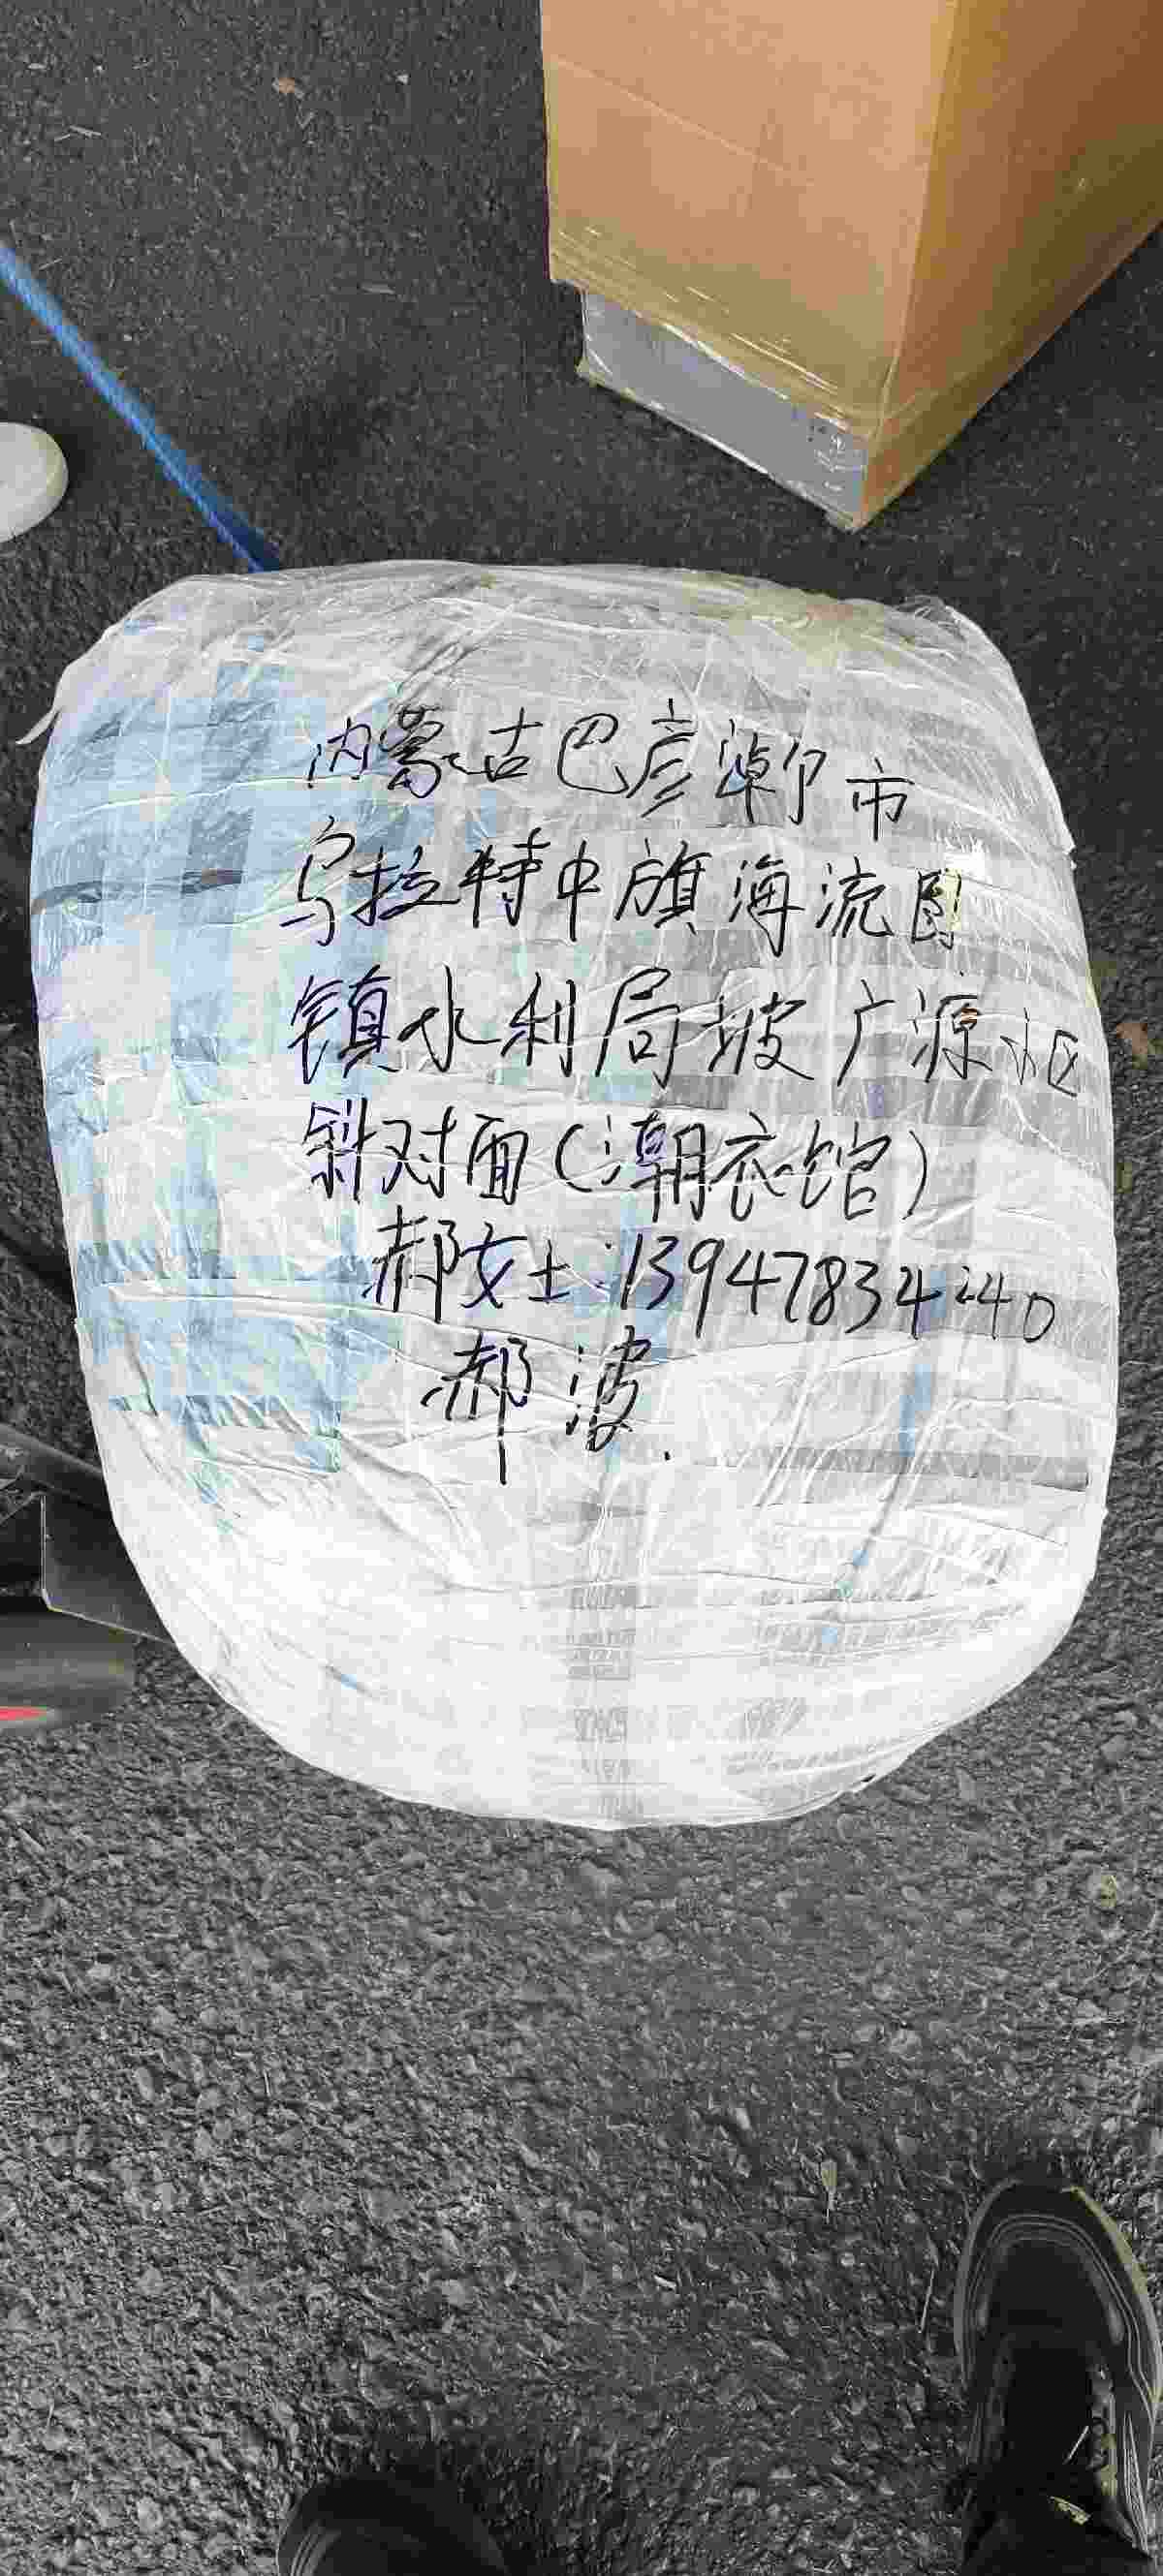 内蒙古巴彦淖尔市
乌拉特中旗海流图
镇水利局坡广源小区
斜对面(潮衣馆)
郝女士:13947834240
郝波.